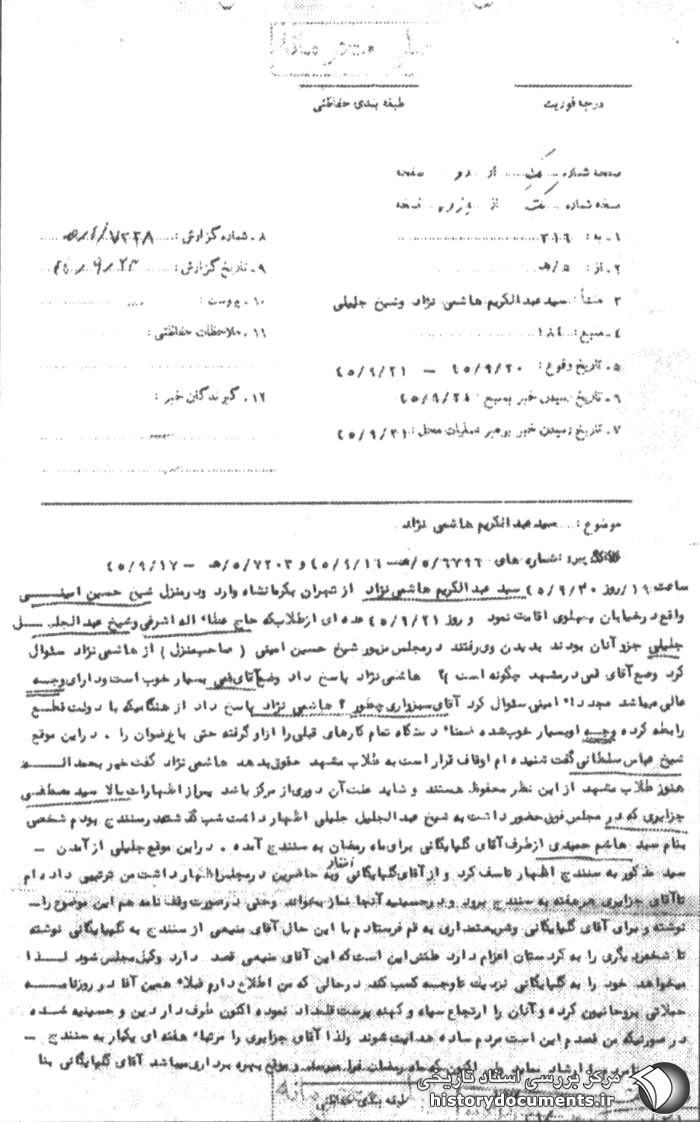 درجه فوریت
طبقه بندی حفاظتی
صفحه شماره یک از دو صفحه
نسخه شماره یک از نسخه
۱ـ به : ۳۱۶
۸ـ شماره گزارش :
۲ـ از : ۵/هـ
۹ـ تاریخ گزارش :
۳ـ منشأ : سید عبدالکریم هاشمی نژاد وشیخ جلیلی
۱۰ـ پیوست :
۴ـ منبع : ۱۸۴
۱۱ـ ملاحظات حفاظتی :
۵ـ تاریخ وقوع : ۴۵/۹/۲۰ ـ ۴۵/۹/۲۱
۶ـ تاریخ رسیدن خبر بمنبع :
۱۲ـ گیرندگان خبر :
۷ـ تاریخ رسیدن خبر برهبر عملیات محل :
موضوع : سید عبدالکریم هاشمی نژاد
پیرو : شماره های ۵/۶۷۹۶/هـ ـ ۴۵/۹/۱۶ و ۵/۷۲۰۳/هـ ـ ۴۵/۹/۱۷
ساعت ۱۹ روز ۴۵/۹/۲۰ سید عبدالکریم هاشمی نژاد از تهران بکرمانشاه وارد ودرمنزل شیخ حسین امینی
واقع درخیابان پهلوی اقامت نمود و روز ۴۵/۹/۲۱ عده ای ازطلاب که حاج عطاء اله اشرفی وشیخ عبدالجلیل
جلیلی جزو آنان بودند بدیدن وی رفتند درمجلس مزبور شیخ حسین امینی ( صاحب منزل ) از هاشمی نژاد سئوال
کرد وضع آقای قمی درمشهد چگونه است ؟ هاشمی نژاد پاسخ داد وضع آقای قمی بسیار خوب است ودارای وجهه
عالی میباشد مجدداً امینی سئوال کرد آقای سبزواری چطور ؟ هاشمی نژاد پاسخ داد از هنگامیکه با دولت قطع
رابطه کرده وجهه او بسیار خوب شده ضمناً دستگاه تمام کارهای قبلی را از او گرفته حتی باغ رضوان را . دراین موقع
شیخ عباس سلطانی گفت شنیده ام اوقاف قرار است به طلاب مشهد حقوق بدهد هاشمی نژاد گفت خیر بحمدالله
هنوز طلاب مشهد از این نظر محفوظ هستند و شاید علت آن دوری از مرکز باشد پس از اظهارات بالا سید مصطفی
جزایری که در مجلس فوق حضور داشت به شیخ عبدالجلیل جلیلی اظهار داشت شب گذشته درسنندج بودم شخصی
بنام سید هاشم حمیدی ازطرف آقای گلپایگانی برای ماه رمضان به سنندج آمده . دراین موقع جلیلی از آمدن ـ
سید مذکور به سنندج اظهار تاسف کرد و از آقای گلپایگانی انتقاد وبه حاضرین درمجلس اظهار داشت من ترتیبی داده ام
تاآقای جزایری هرهفته به سنندج برود ودرحسینیه آنجا نماز بخواند وحتی درصورت وقف نامه هم این موضوع را ـ
نوشته و برای آقای گلپایگانی وشریعتمداری به قم فرستادم با این حال آقای منیعی از سنندج به گلپایگانی نوشته
تا شخص دیگری را به کردستان اعزام دارد علتش این است که این آقای منیعی قصد دارد وکیل مجلس شود لذا
میخواهد خود را به گلپایگانی نزدیک تا وجهه کسب کند درحالی که من اطلاع دارم قبلاً همین آقا در روزنامه
حملاتی بروحانیون کرده و آنان را ارتجاع سیاه و کهنه پرست قلمداد نموده اکنون طرف دار دین و حسینیه شده
در صورتیکه من قصدم این است مردم ساده هدایت شوند ولذا آقای جزایری را مرتباً هفته ای یکبار به سنندج ـ
ارشاد نماید ولی اکنون که ماه رمضان فرا میرسد و موقع بهره برداری میباشد آقای گلپایگانی بنا
طبقه بندی حفاظتی
مرکز بررسی اسناد تاریخی
historydocuments.ir